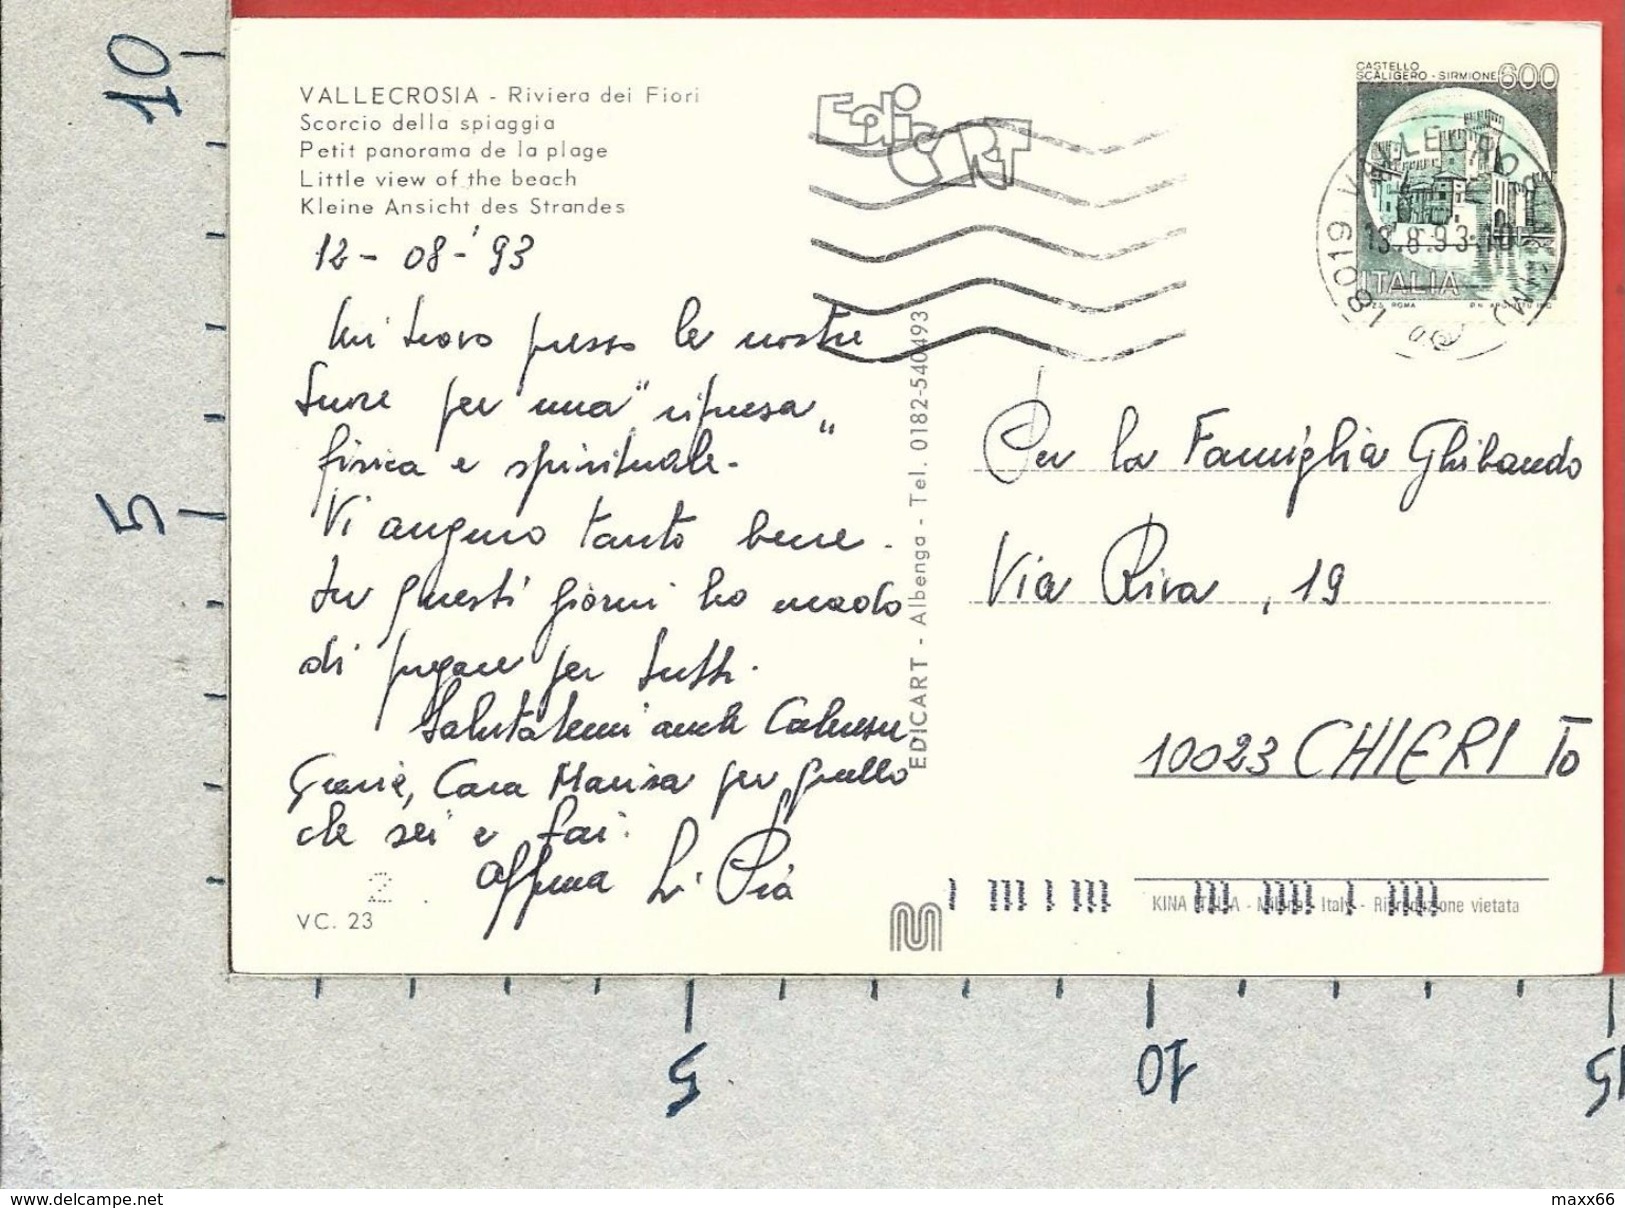 VALLECROSIA - Riviera dei Fiori
Scorcio della spiaggia
Petit panorama de la plage
Little view of the beach
Kleine Ansicht des Strandes
12 - 08 - '93
Mi trovo presso le nostre
Suore per una "ripresa"
fisica e spirituale.
Vi auguro tanto bene.
In questi giorni ho modo
di pregare per tutti.
Salutatemi anche
Grazie, Cara Marisa per quello
che sei e fai.
Aff.ma
VC. 23
2
EdiCART
EDICART - Albenga - Tel. 0182-540493
CASTELLO
SCALIGERO - SIRMIONE 600
ITALIA
18019 VALLECROSIA
13.8.93-10
(IM)
Per la Famiglia Ghibaudo
Via Riva, 19
10023 CHIERI TO
KINA ITALIA - Milano - Italy - Riproduzione vietata
10
5
5
10
15
www.delcampe.net
maxx66